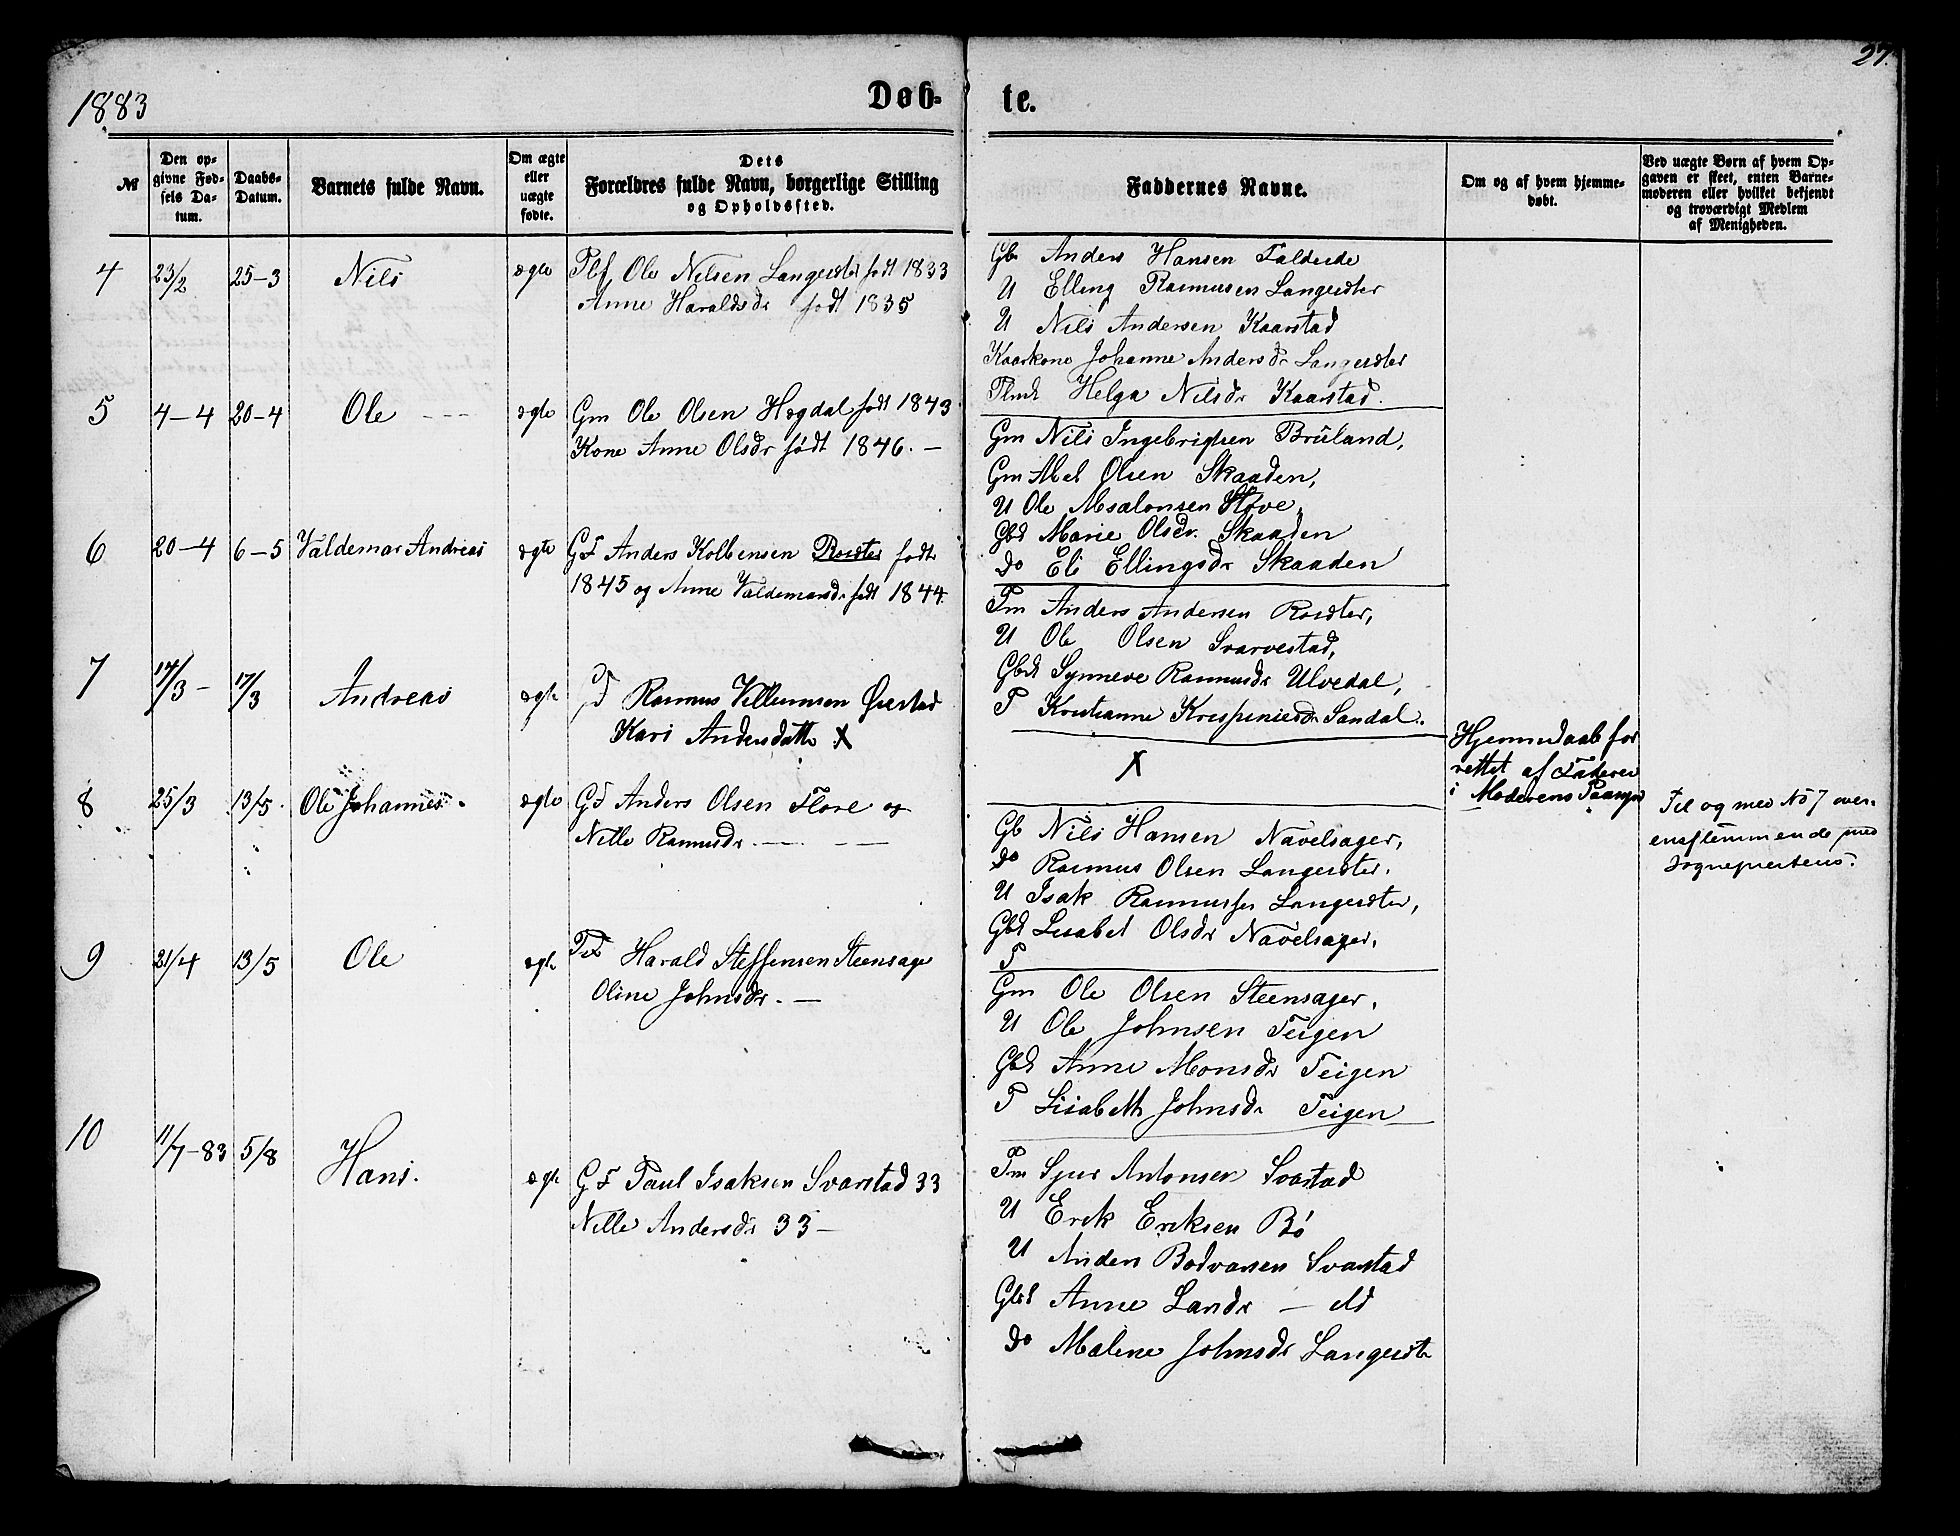 1883
Døb-
te.
27.
№
Den op-
givne Fød-
sels Da-
tum.
Daabs-
Datum.
Barnets fulde Navn.
Om ægte
eller
uægte
fødte.
Dets
Forældres fulde Navn, borgerlige Stilling
og Opholdssted.
Faddernes Navne.
Om og af hvem hjemme-
døbt.
Ved uægte Børn af hvem Op-
gaven er skeet, enten Barne-
moderen eller hvilket bekjendt
og troværdigt Medlem
af Menigheden.
4 23/2 25-3 Nils ægte Plf Ole Nilsen Langesæter født 1833
Anne Haraldsdr født 1835
Gbr Anders Hansen Falderde
U Elling Rasmusen Langesæter
U Nils Andersen Kaarstad
Kaarkone Johanne Andersdr Langesæter
Helga Nilsdr Kaarstad.
5 4-4 20-4 Ole ægte Gm Ole Olsen Høgdal født 1843
Kone Anne Olsdr født 1846. —
Gm Nils Ingebrigtsen Bruland,
Gm Abel Olsen Skaaden,
U Ole Absalonsen Støve,
Gbd Marie Olsdr. Skaaden
do Eli Ellingsdr Skaaden
6 20-4 6-5 Valdemar Andreas ægte GF Anders Kolbensen Rosæter født
1845 og Anne Valdemarsdr født 1844.
Pm Anders Andersen Rosæter,
U Ole Olsen Svarvestad,
Gbd Synneve Rasmusdr Ulvedal,
P Kristianne Krispiniesdr Sandal.
7 14/3- 17/3 Andreas ægte Rasmus Villumsen Øvrstad
Kari Andersdatter X
X
Hjemmedaab for
rettet af Faderen
i Moderens Paasyn
8 25/3 13/5. Ole Johannes. ægte GF Anders Olsen Flore og
Nille Rasmusdr. — —
Gb Nils Hansen Navelsager,
do Rasmus Olsen Langesæter.
U Isak Rasmussen Langesæter,
Gbd Lisabet Olsdr Navelsager,
P
Til og med No 7 over-
ensstemmende med
Sognepræstens.
9 21/4 13/5 Ole ægte Harald Steffensen Steensager
Oline Johnsdr. —
Gm Ole Olsen Steensager,
U Ole Johnsen Teigen
Gbd Anne Monsdr Teigen
P Lisabeth Johnsdr Teigen
10 11/7-83 5/8 Hans. ægte GF Paul Isaksen Svarstad 33
Nille Andersdr 33 —
Pm Sjur Antonsen Svarstad
U Erik Eriksen Bø
U Anders Bodvarsen Svarstad
Gbd Anne Larsdr — do
do Malene Johnsdr Langesæter